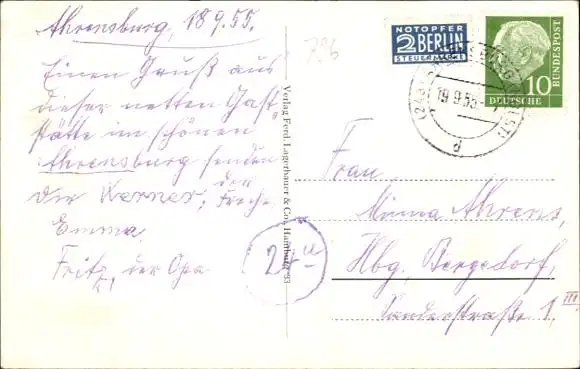 Ahrensburg, 18.9.55.
Einen Gruß aus
dieser netten Gast
stätte im schönen
Ahrensburg senden
Dir Werner, der Freche
Emma,
Fritz, der Opa
796
24 u
Verlag Ferd. Lagerbauer & Co., Hamburg 33
NOTOPFER
2 BERLIN
STEUERMARKE
DEUTSCHE
BUNDESPOST
10
19.9.55
Frau
Minna Ahrens,
Hbg. Bergedorf,
Sanderstraße 1,
III